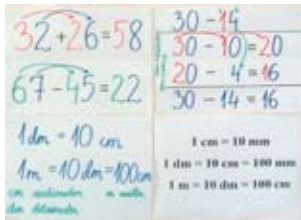 32+26=58
67-45=22
1dm = 10 cm
1m = 10dm = 100cm
30-14
30-10=20
20-4=16
30-14=16
1 cm = 10 mm
1 dm = 10 cm = 100 mm
1 m = 10 dm = 100 cm